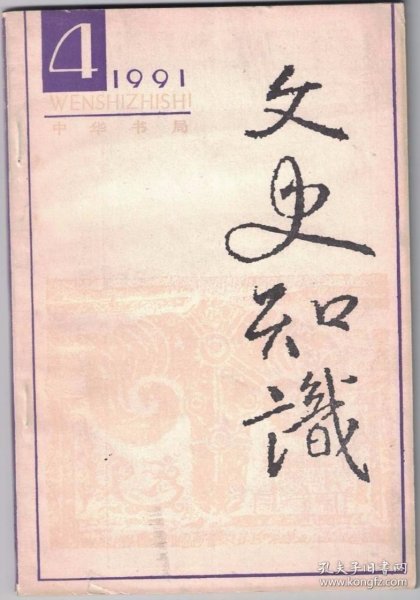 4
1991
WENSHIZHISHI
中华书局
文史知識
孔夫子旧书网
www.kongfz.com